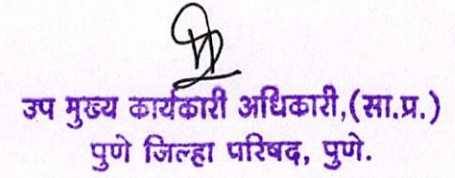 उप मुख्य कार्यकारी अधिकारी,(सा.प्र.)
पुणे जिल्हा परिषद, पुणे.